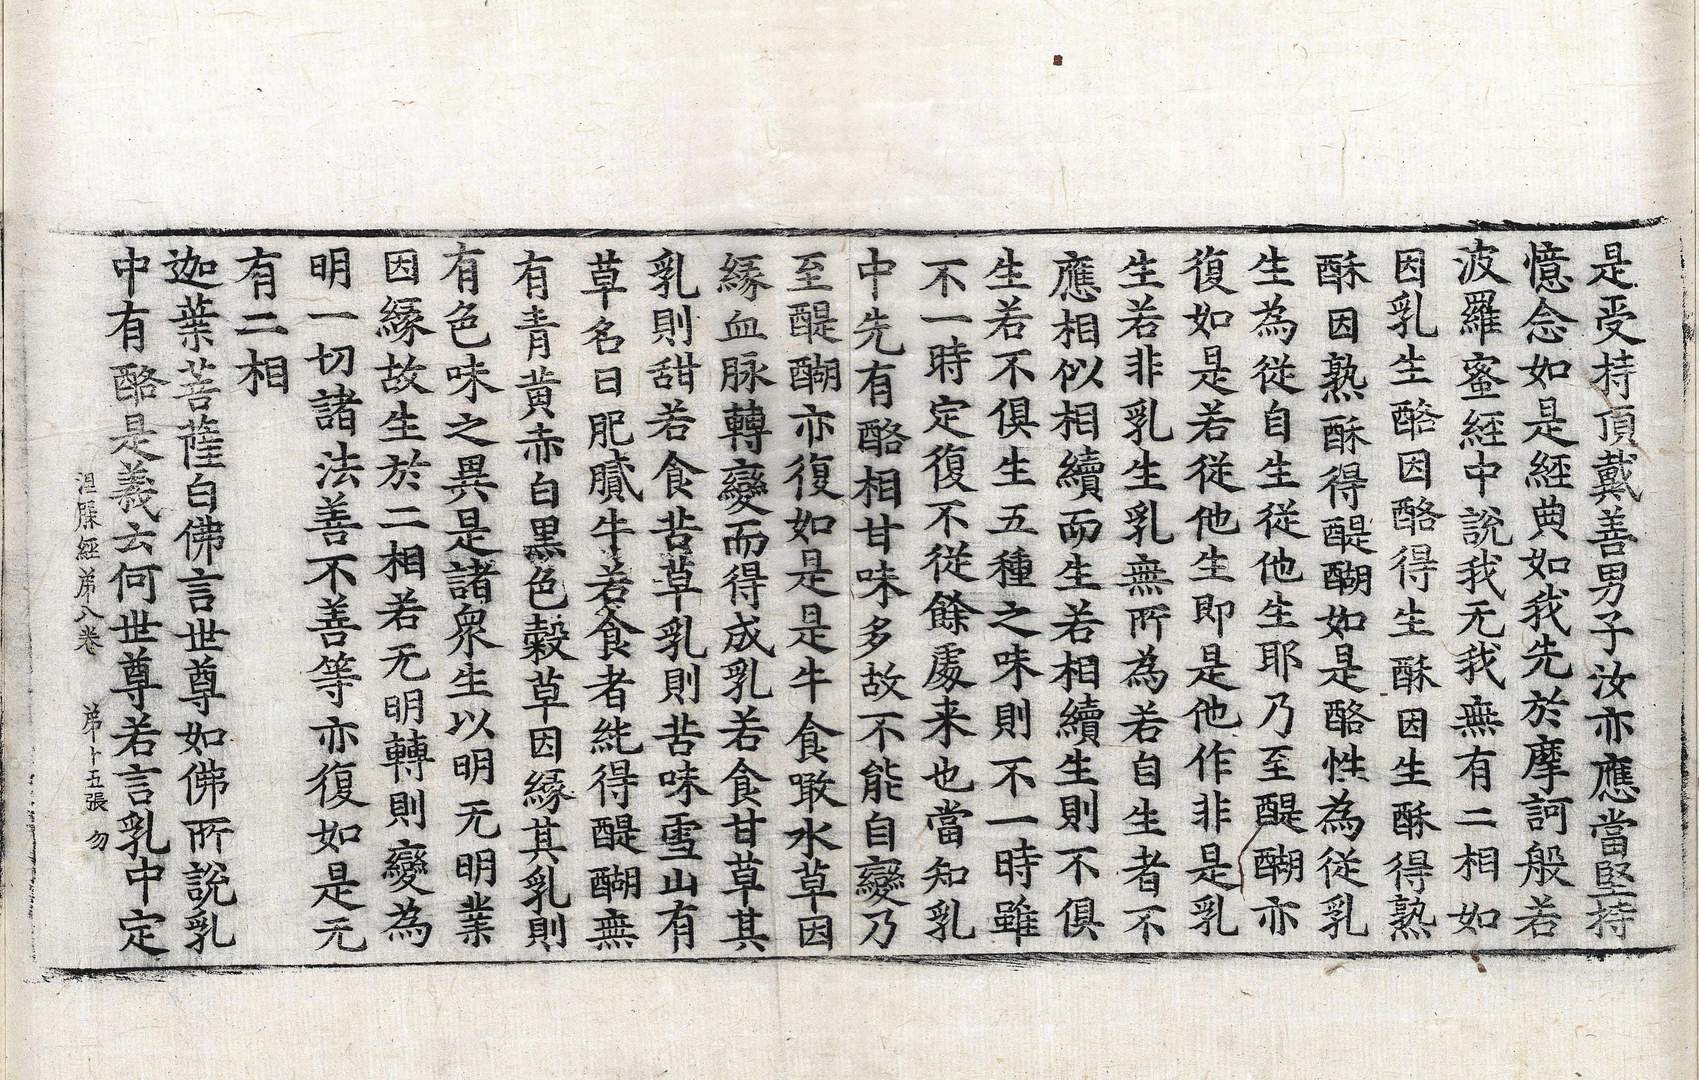 是受持頂戴善男子汝亦應當堅持
憶念如是經典如我先於摩訶般若
波羅蜜經中說我无我無有二相如
因乳生酪因酪得生酥因生酥得熟
酥因熟酥得醍醐如是酪性為從乳
生為從自生從他生耶乃至醍醐亦
復如是若從他生即是他作非是乳
生若非乳生乳無所為若自生者不
應相似相續而生若相續生則不俱
生若不俱生五種之味則不一時雖
不一時定復不從餘處来也當知乳
中先有酪相甘味多故不能自變乃
至醍醐亦復如是是牛食噉水草因
緣血脉轉變而得成乳若食甘草其
乳則甜若食苦草乳則苦味雪山有
草名曰肥膩牛若食者純得醍醐無
有青黃赤白黑色穀草因緣其乳則
有色味之異是諸衆生以明无明業
因緣故生於二相若无明轉則變為
明一切諸法善不善等亦復如是无
有二相
迦葉菩薩白佛言世尊如佛所說乳
中有酪是義云何世尊若言乳中定
涅槃經第八卷　第十五張　勿